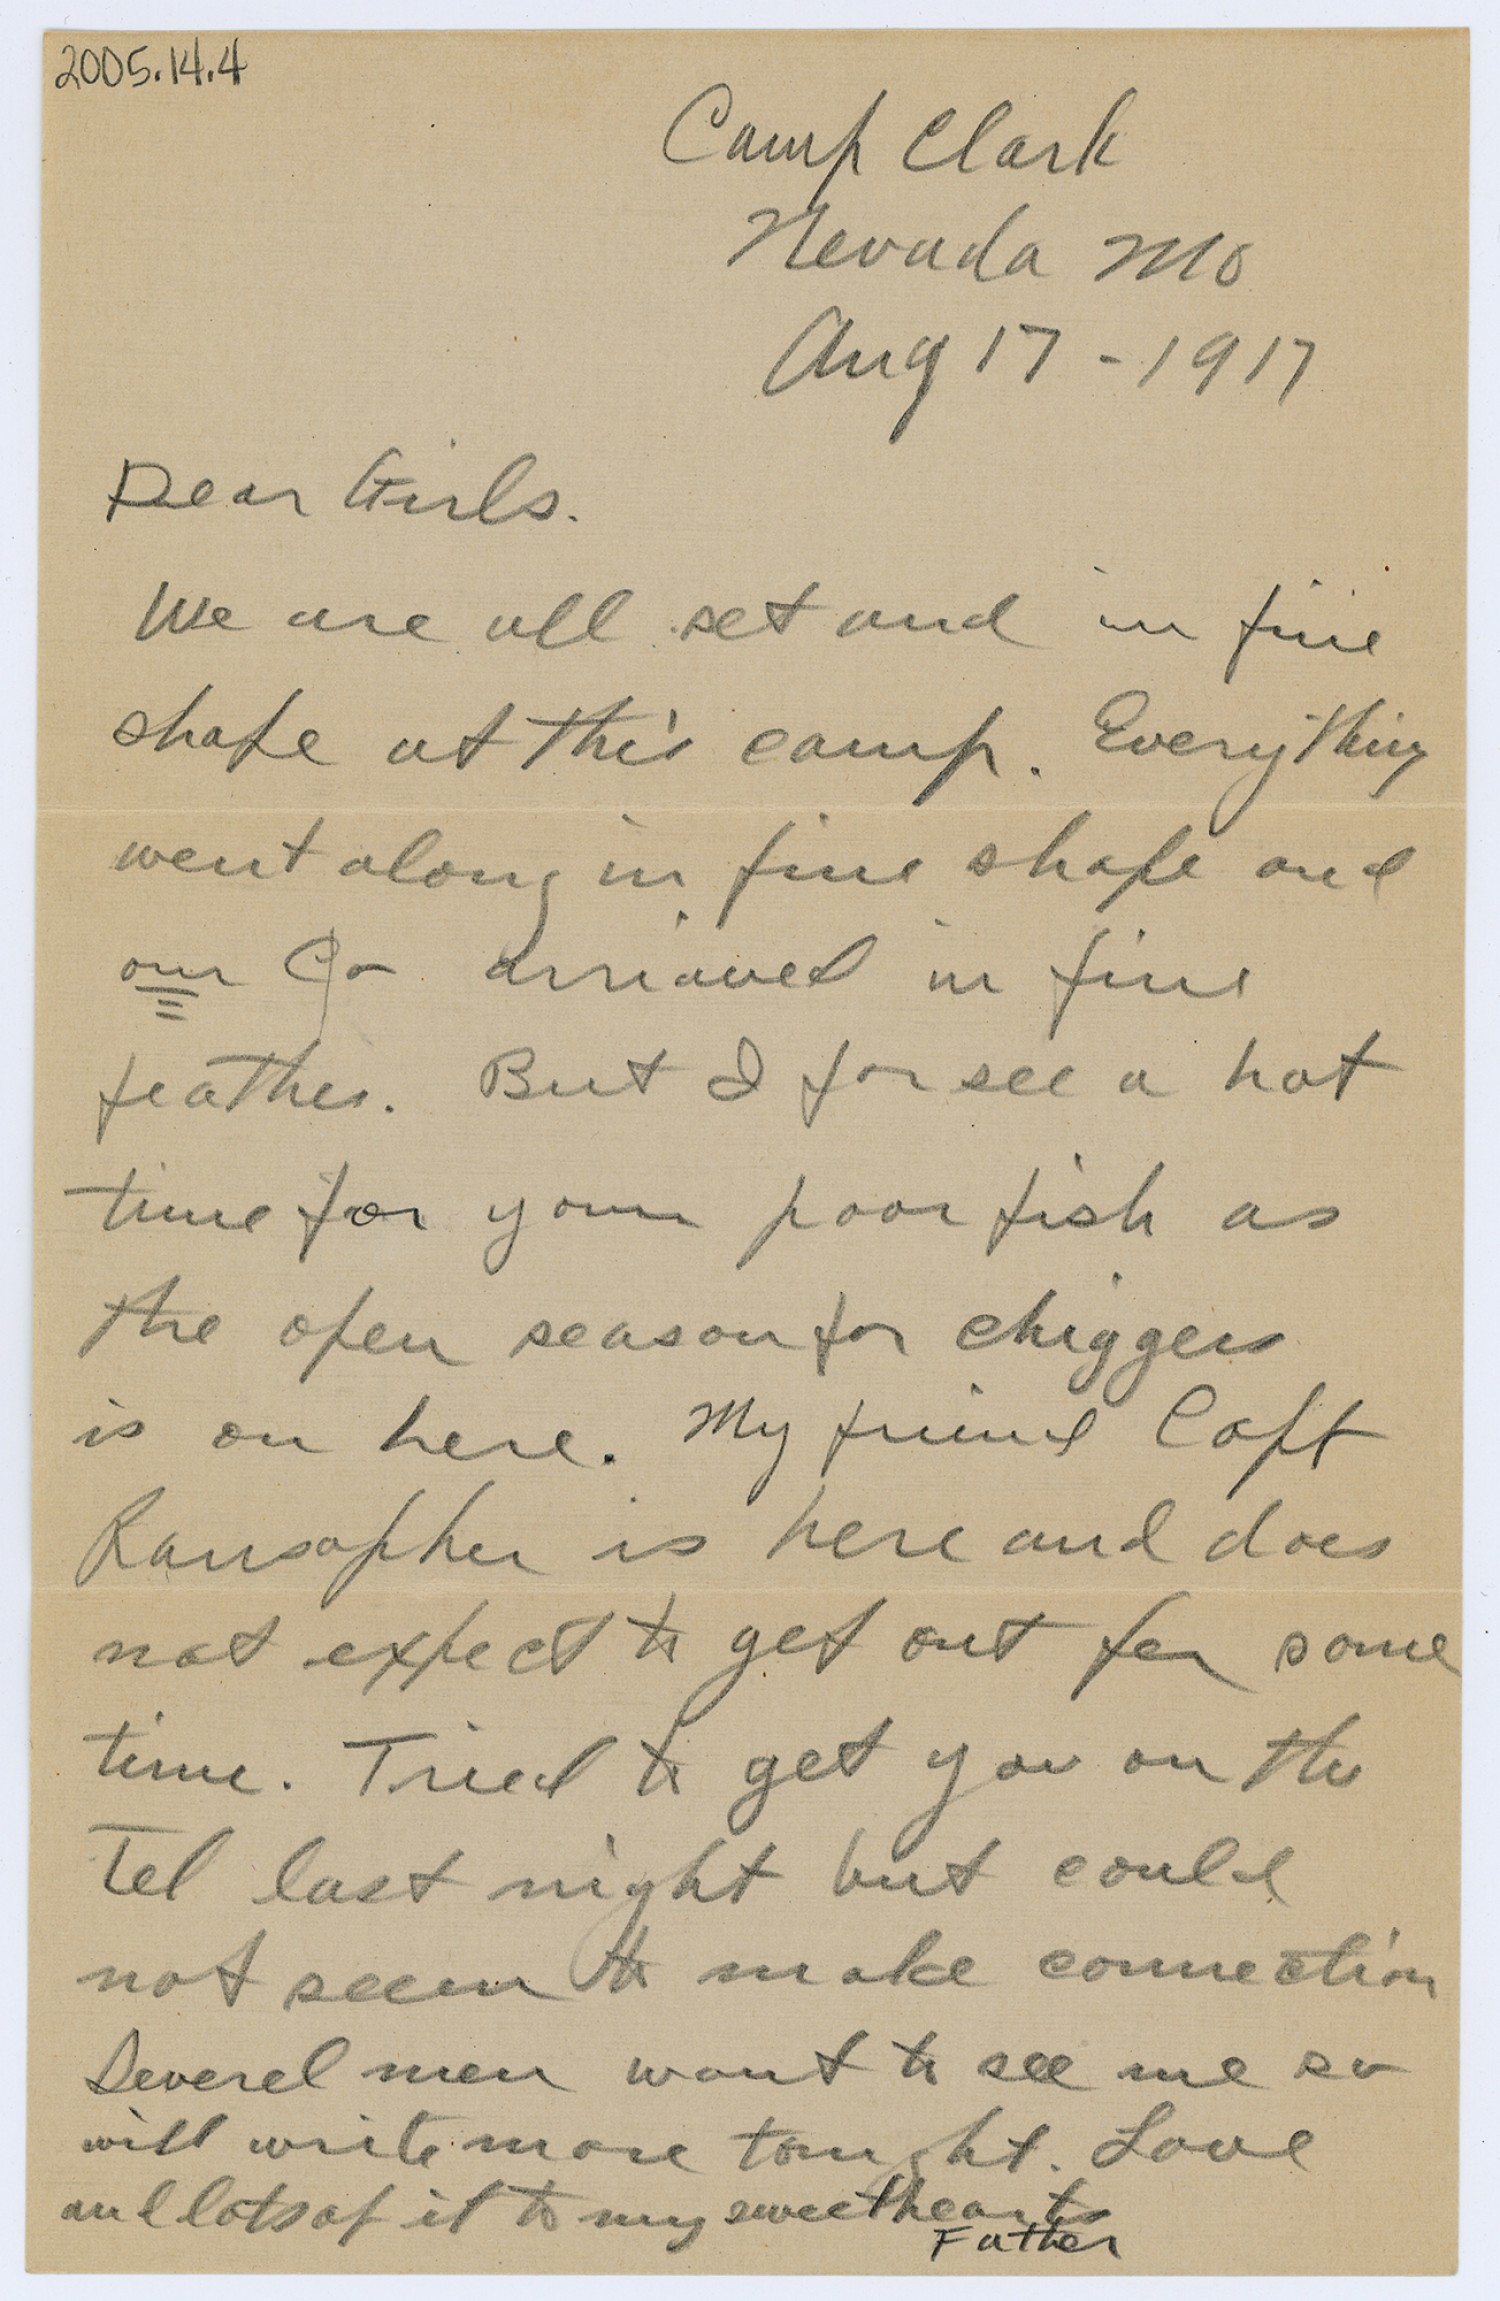 2005.14.4
Camp Clark
Nevada Mo
Aug 17-1917
Dear Girls.
We are all set and in fine
shape at this camp. Everything
went along in fine shape and
our Co arrived in fine
feather. But I for see a hot
time for your poor fish as
the open season for chiggers
is on here. My friend Capt
Ransopher is here and does
not expect to get out fer some
time. Tried to get you on the
Tel last night but could
not seem to make connection
Severel men want to see me so
will write more tonight. Love
and lots of it to my sweethearts
Father